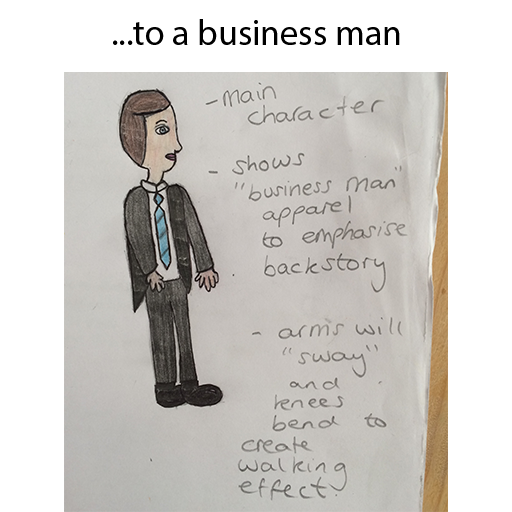 ...to a business man
- Main
character
- shows
"business man"
apparel
to emphasise
backstory
- arms will
"sway"
and
knees
bend to
create
walking
effect.